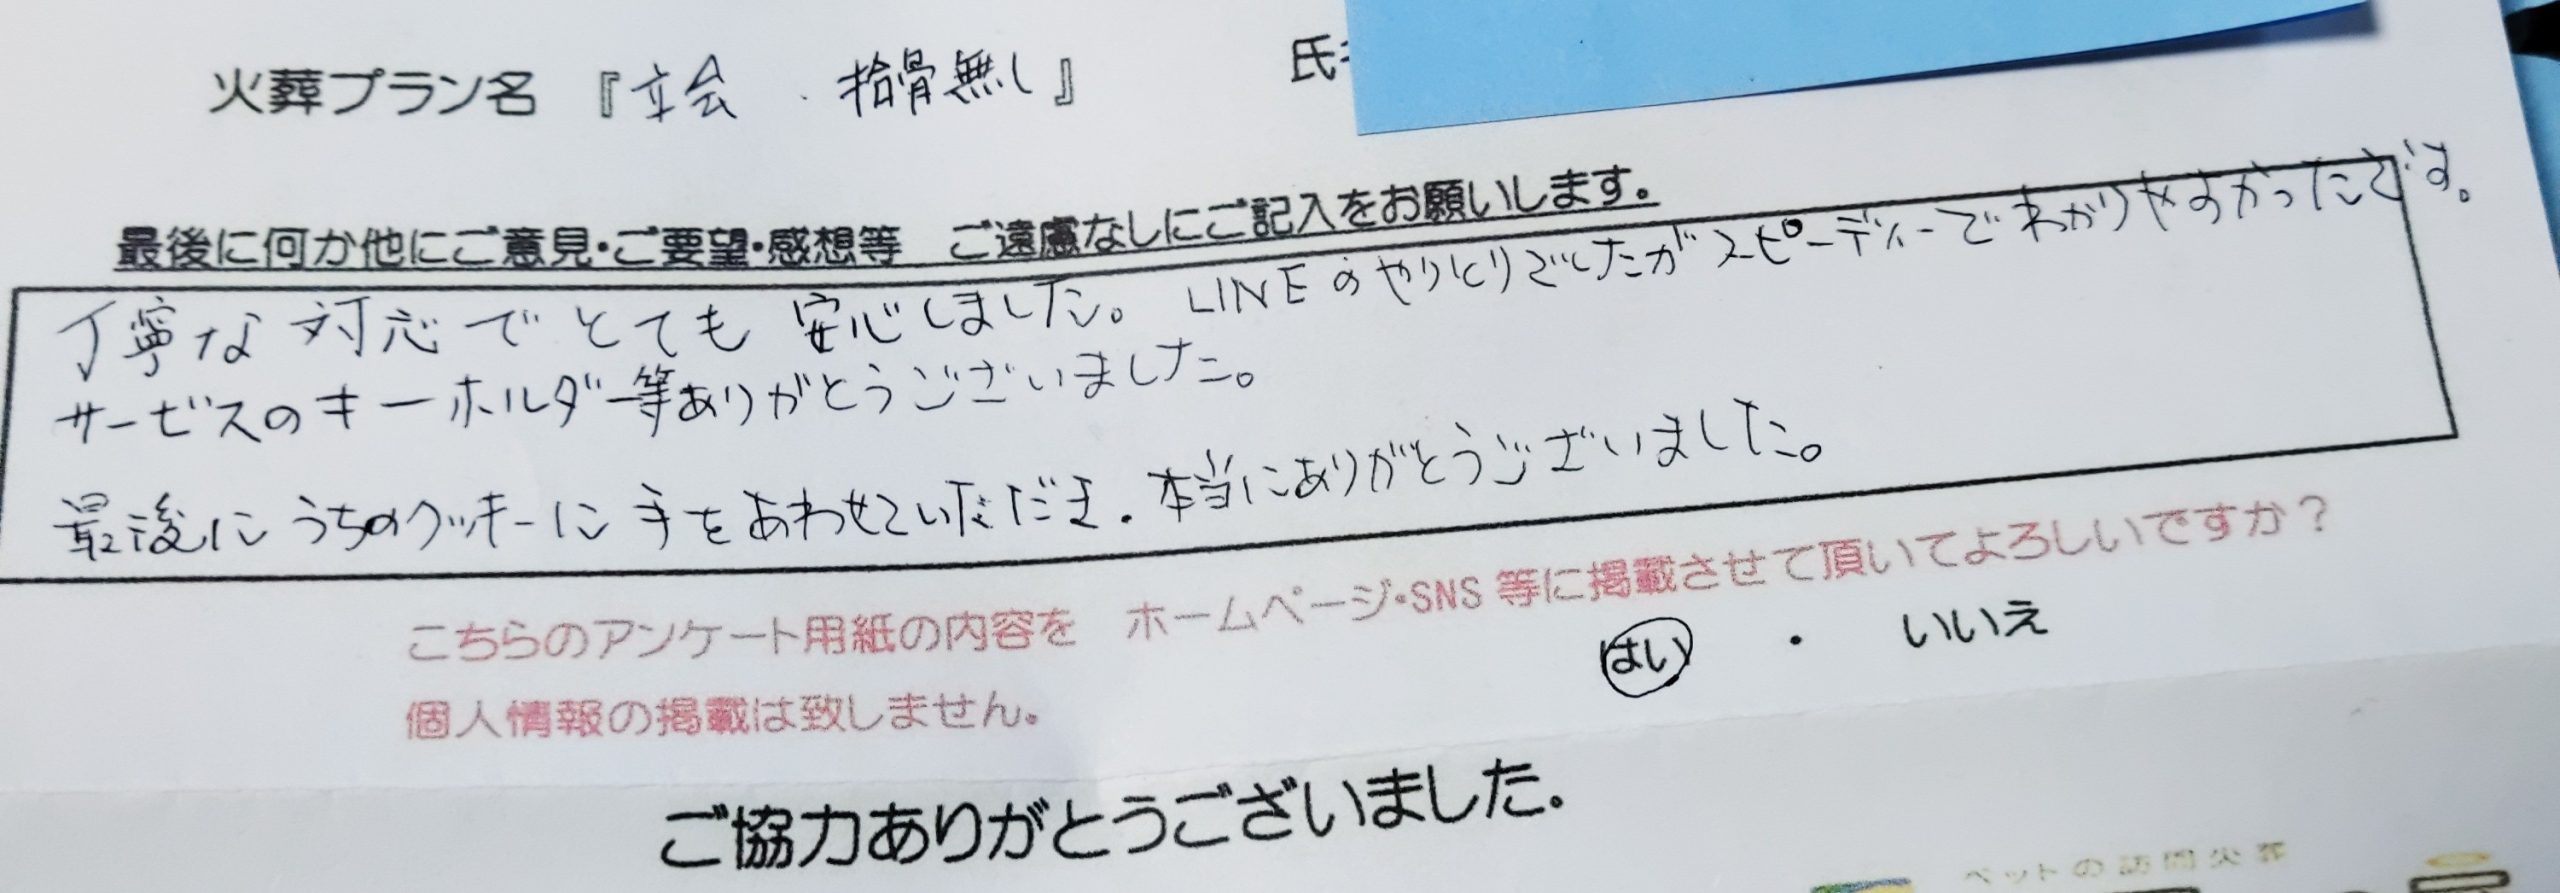 火葬プラン名 『立会 . 拾骨無し』 氏
最後に何か他にご意見・ご要望・感想等 ご遠慮なしにご記入をお願いします。
丁寧な対応でとても安心しました。LINEのやりとりでしたがスピーディーでわかりやすかったです。
サービスのキーホルダー等ありがとうございました。
最後にうちのクッキーに手をあわせていただき.本当にありがとうございました。
こちらのアンケート用紙の内容を ホームページ・SNS 等に掲載させて頂いてよろしいですか？
はい ・ いいえ
個人情報の掲載は致しません。
ご協力ありがとうございました.
ペットの訪問火葬